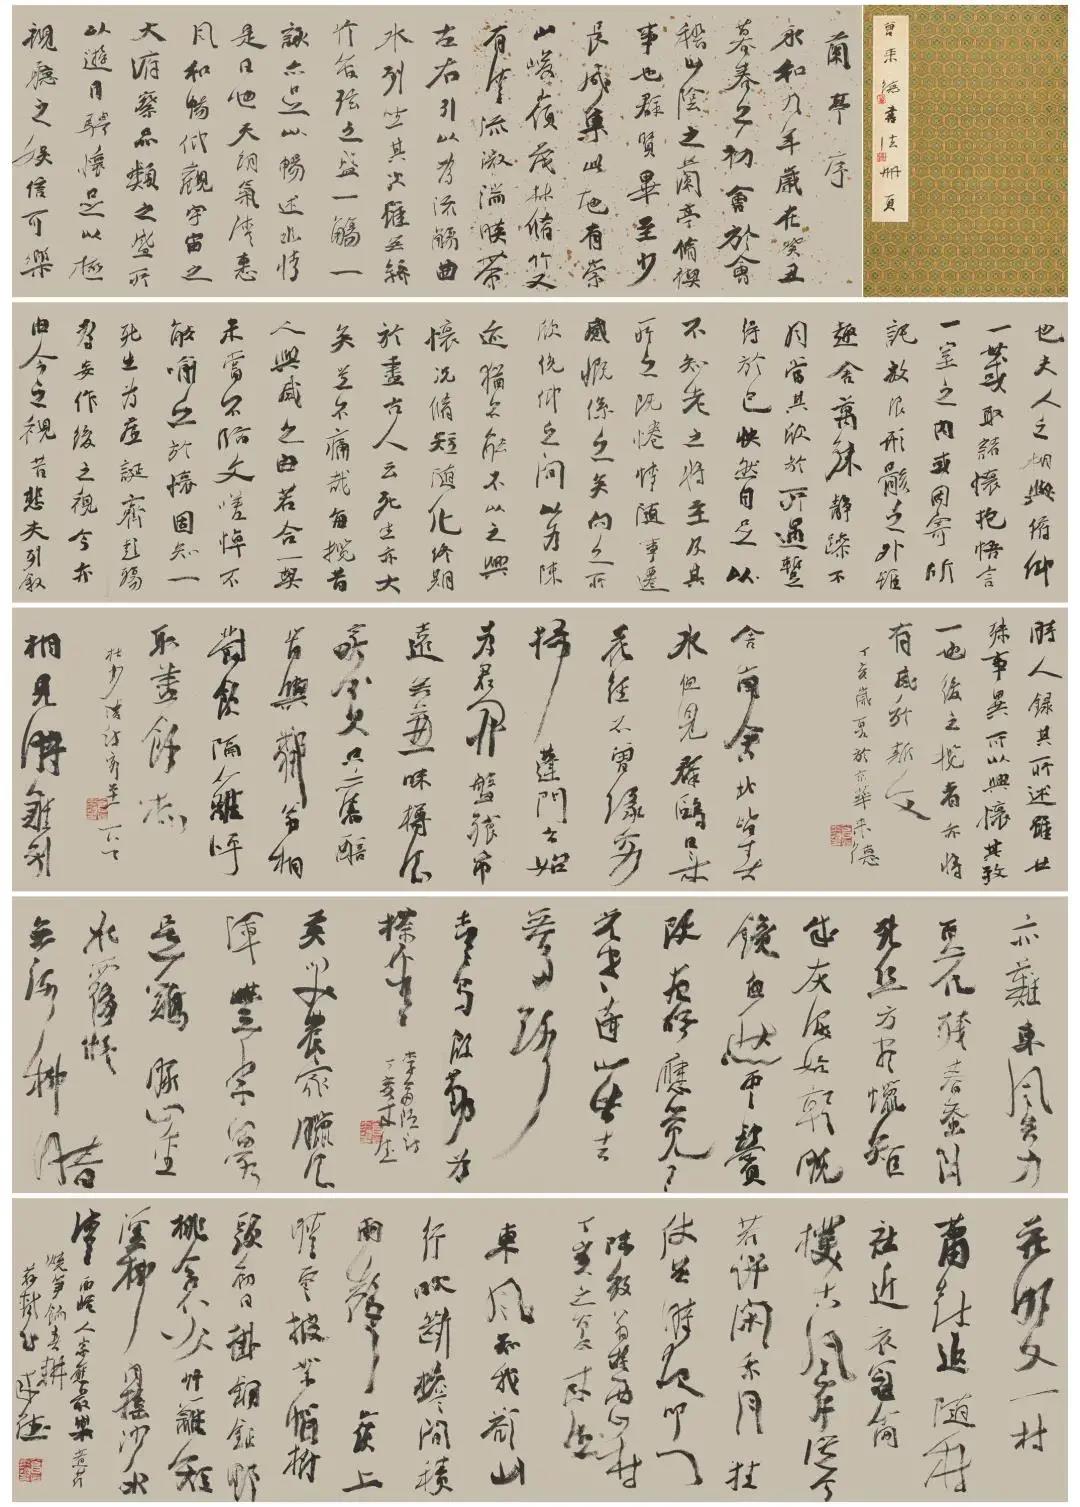 曾来德書法册頁
蘭亭序
永和九年歲在癸丑
暮春之初會於會
稽山陰之蘭亭脩禊
事也群賢畢至少
長咸集此地有崇
山峻嶺茂林脩竹又
有清流激湍暎帶
左右引以為流觴曲
水列坐其次雖無絲
竹管弦之盛一觴一
詠亦足以暢述幽情
是日也天朗氣清惠
風和暢仰觀宇宙之
大俯察品類之盛所
以遊目騁懷足以極
視聽之娛信可樂
也夫人之相與俯仰
一世或取諸懷抱悟言
一室之內或因寄所
託放浪形骸之外雖
趣舍萬殊靜躁不
同當其欣於所遇暫
得於己快然自足以
不知老之將至及其
所之既惓情隨事遷
感慨係之矣向之所
欣俛仰之間以為陳
迹猶不能不以之興
懷況脩短隨化終期
於盡古人云死生亦大
矣豈不痛哉每攬昔
人興感之由若合一契
未嘗不臨文嗟悼不
能喻之於懷固知一
死生為虛誕齊彭殤
為妄作後之視今亦
由今之視昔悲夫列敘
時人錄其所述雖世
殊事異所以興懷其致
一也後之攬者亦將
有感於斯文
丁亥歲夏於京華来德
舍南舍北皆春
水但見群鷗日日來
花徑不曾緣客
掃蓬門今始
為君開盤飧市
遠無兼味樽酒
家貧只舊醅
肯與鄰翁相
對飲隔籬呼
取盡餘杯
杜少陵詩客至
相見時難別
亦難東風無力
百花殘春蠶到
死絲方盡蠟炬
成灰淚始乾曉
鏡但愁雲鬢
改夜吟應覺月
光寒蓬山此去
無多路
青鳥殷勤為
探看
李商隱詩
丁亥来德
莫笑農家臘酒
渾豐年留客
足雞豚山重
水複疑
無路柳暗
花明又一村
簫鼓追隨春
社近衣冠簡
樸古風存從今
若許閑乘月拄
杖無時夜叩門
陸放翁遊西山村
丁亥之夏来德
東風知我欲山
行吹斷檐間積
雨聲嶺上
晴雲披絮帽樹
頭初日掛銅鉦野
桃含笑竹籬短
溪柳自搖沙水
清西崦人家應最樂煮芹
燒笋餉春耕
蘇軾詩来德